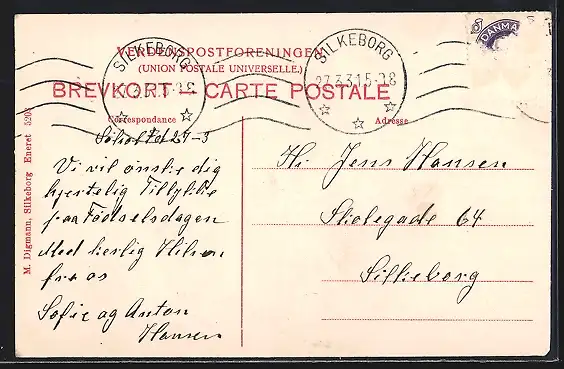 VERDENSPOSTFORENINGEN
(UNION POSTALE UNIVERSELLE.)
BREVKORT — CARTE POSTALE
SILKEBORG
SILKEBORG
27.3.31 5-8
DANMA
Correspondance
Adresse
27-3
Vi vil ønske dig
hjertelig Tillykke
paa Fødselsdagen
Med kerlig Hilsen
fra os
Sofie og Anton
Hansen
Hr. Jens Hansen
Skolegade 64
Silkeborg
M. Digmann, Silkeborg Eneret 5203